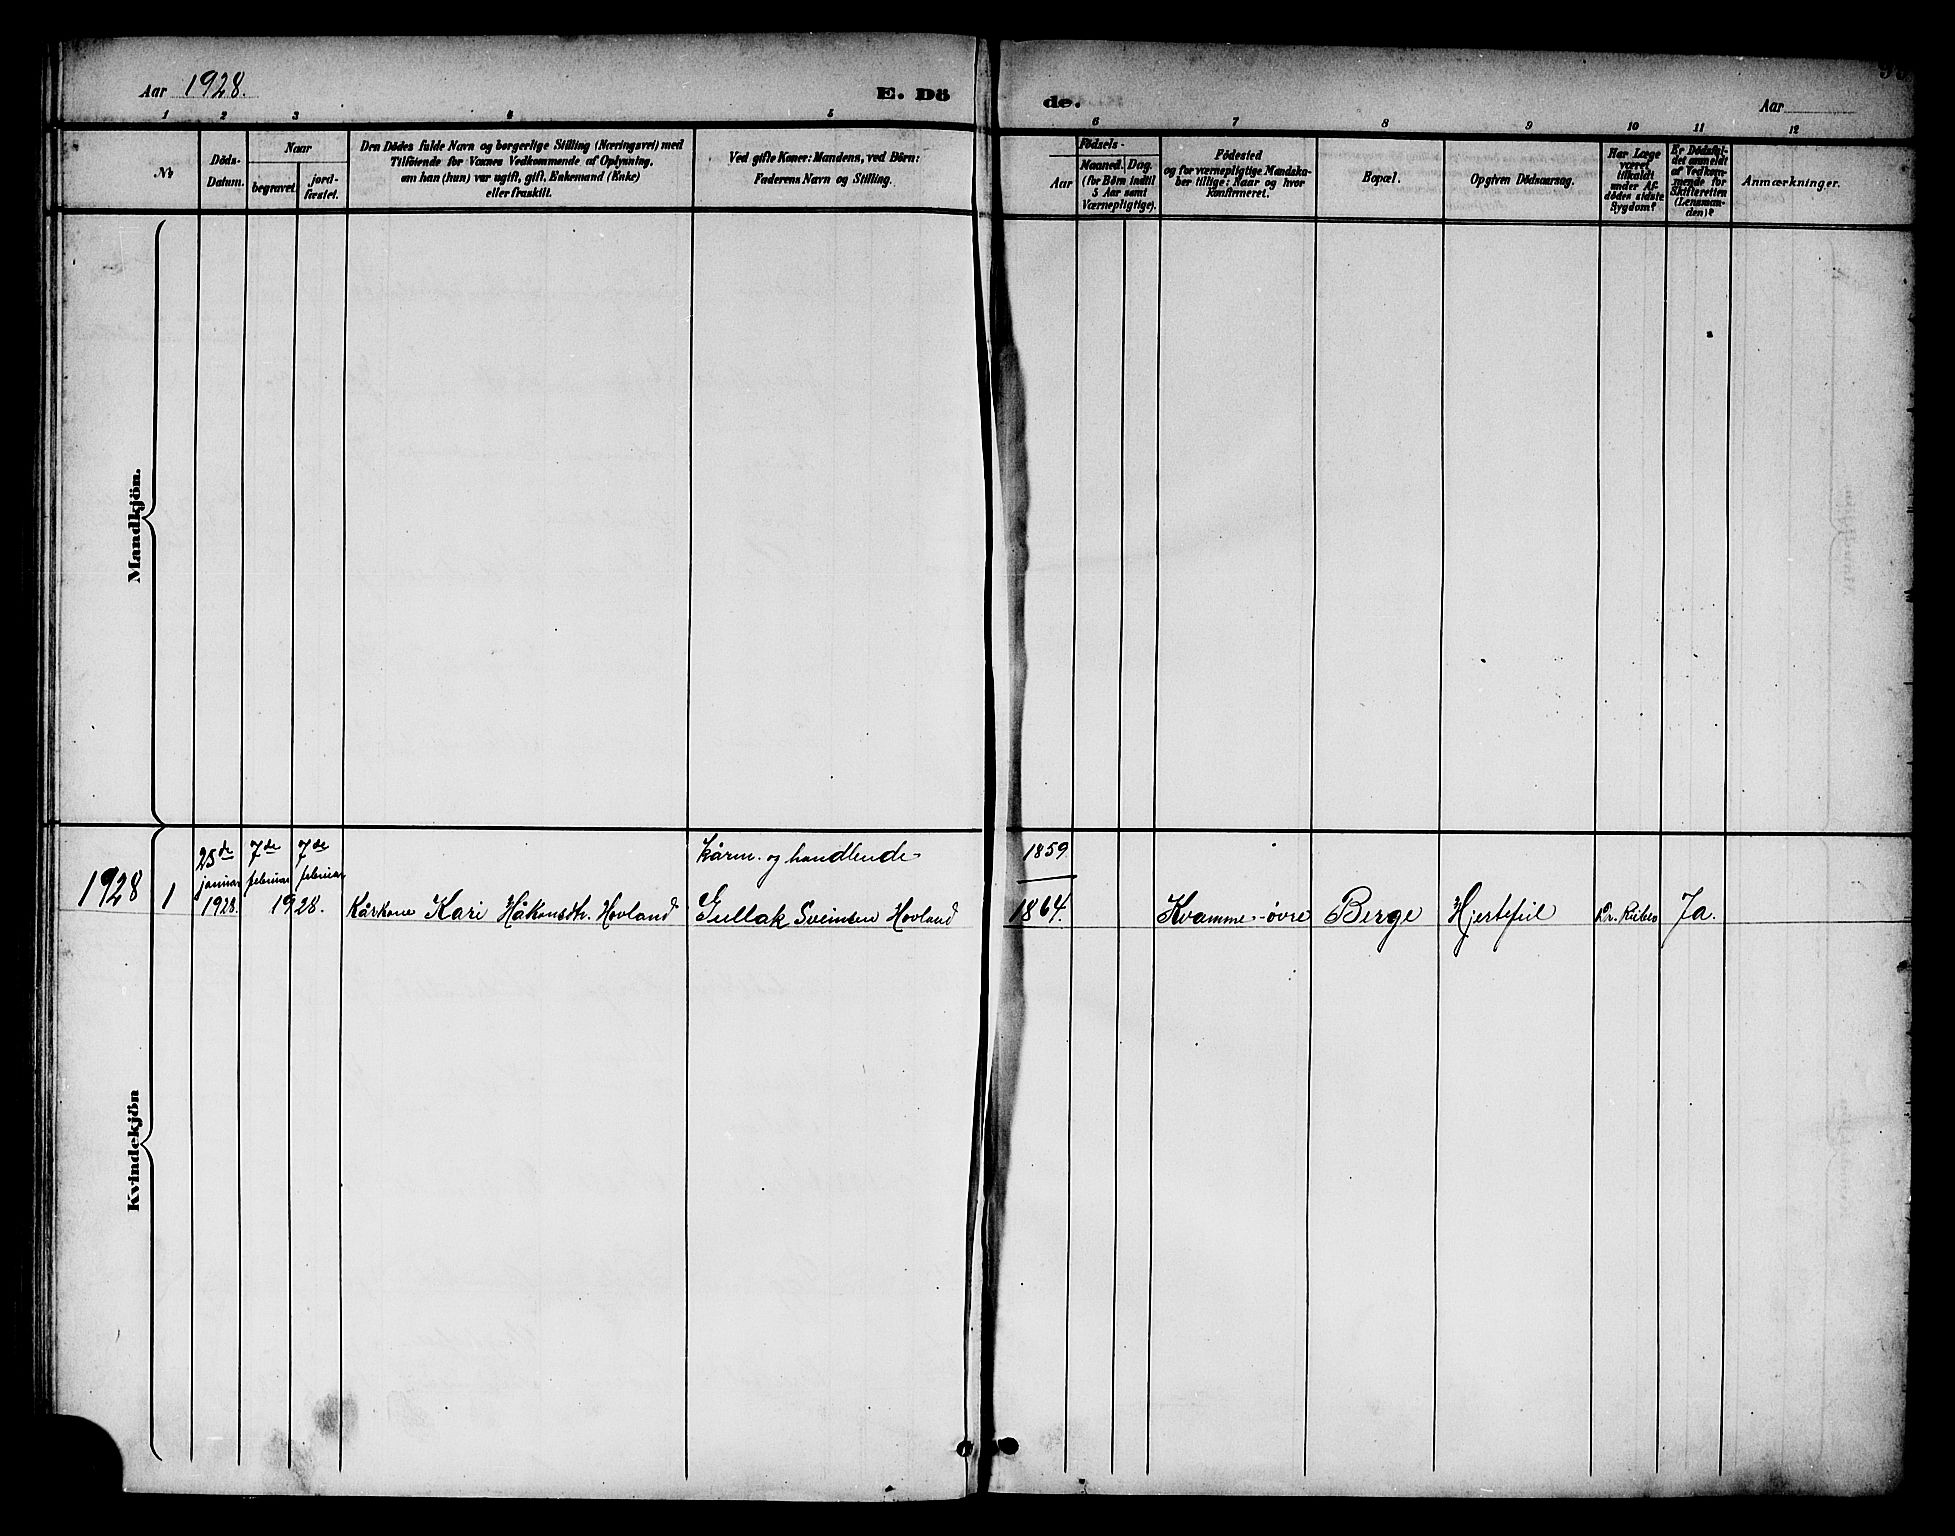 Aar 1928.
E. Dö
de.
Aar
1 2 3 4 5 6 7 8 9 10 11 12
№
Døds-
Datum.
Naar
begravet.
jord-
fæstet.
Den Dødes fulde Navn og borgerlige Stilling (Næringsvei) med
Tilføiende for Voxnes Vedkommende af Oplysning,
om han (hun) var ugift, gift, Enkemand (Enke)
eller fraskilt.
Ved gifte Koner: Mandens, ved Børn:
Faderens Navn og Stilling.
Fødsels-
Aar
Maaned. Dag.
(for Børn indtil
5 Aar samt
Værnepligtige).
Fødested
og for værnepligtige Mandska-
ber tillige: Naar og hvor
konfirmeret.
Bopæl.
Opgiven Dødsaarsag.
Har Læge
været
tilkaldt
under Af-
dødes sidste
Sygdom?
Er Dødsfal-
det anmeldt
af Vedkom-
mende for
Skifteretten
(Lensman-
den)?
Anmærkninger.
Mandkjön.
Kvindekjön
25de 7de 7de kårm. og handlende 1859
januar februar februar
1928 1 1928. 1928. Kårkone Kari Håkonsdh. Hovland Gullak Sveinsen Hovland 1864. Kvamme-øvre Berge Hjertefeil Dr. Riiber Ja.